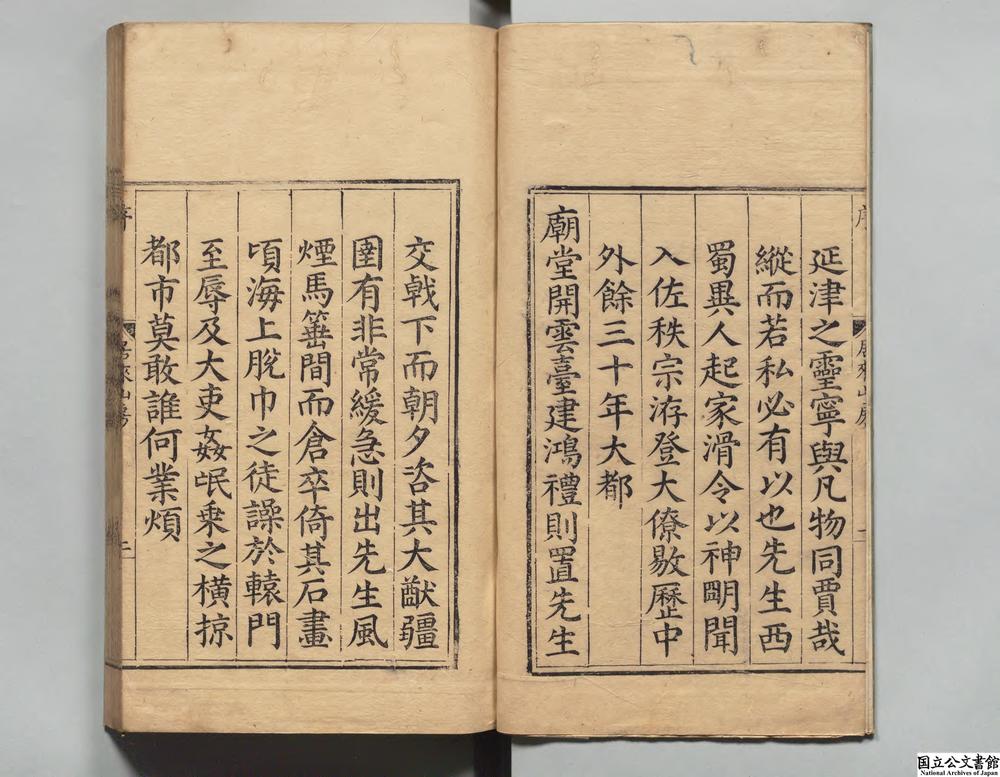 延津之靈寧與凡物同賈哉
縱而若私必有以也先生西
蜀異人起家滑令以神明聞
入佐秩宗洊登大僚敭歷中
外餘三十年大都
廟堂開雲臺建鴻禮則置先生
交戟下而朝夕咨其大猷疆
圉有非常緩急則出先生風
煙馬箠間而倉卒倚其石畫
頃海上脫巾之徒譟於轅門
至辱及大吏姦氓乗之橫掠
都市莫敢誰何業煩
序
居來山房
二
国立公文書館
National Archives of Japan